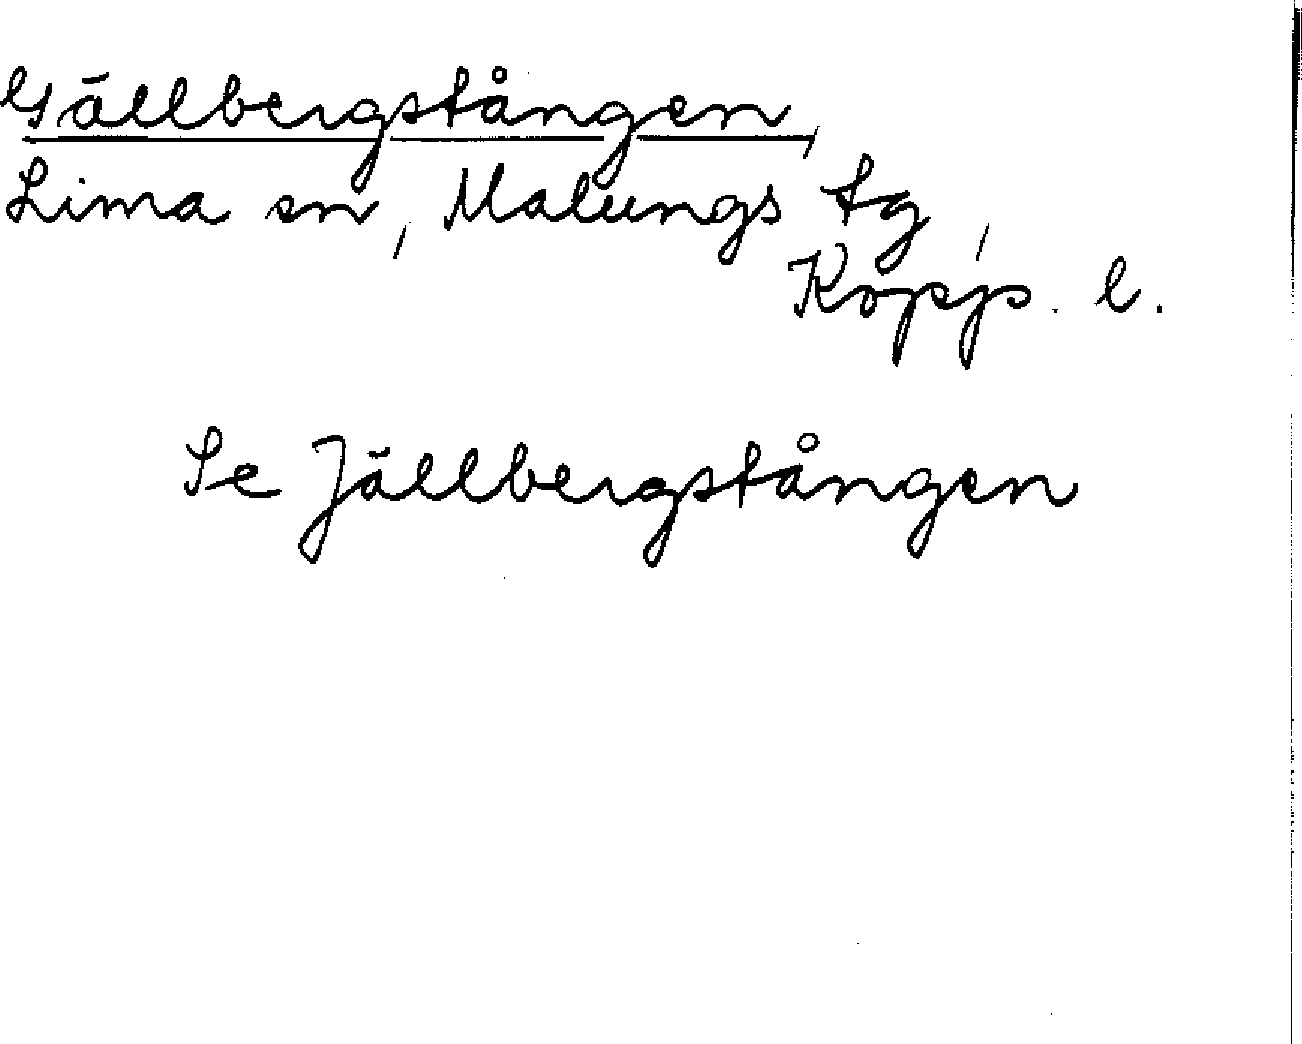 Gällbergstången,
Lima sn, Malungs tg,
Kopp. l.
Se Jällbergstången